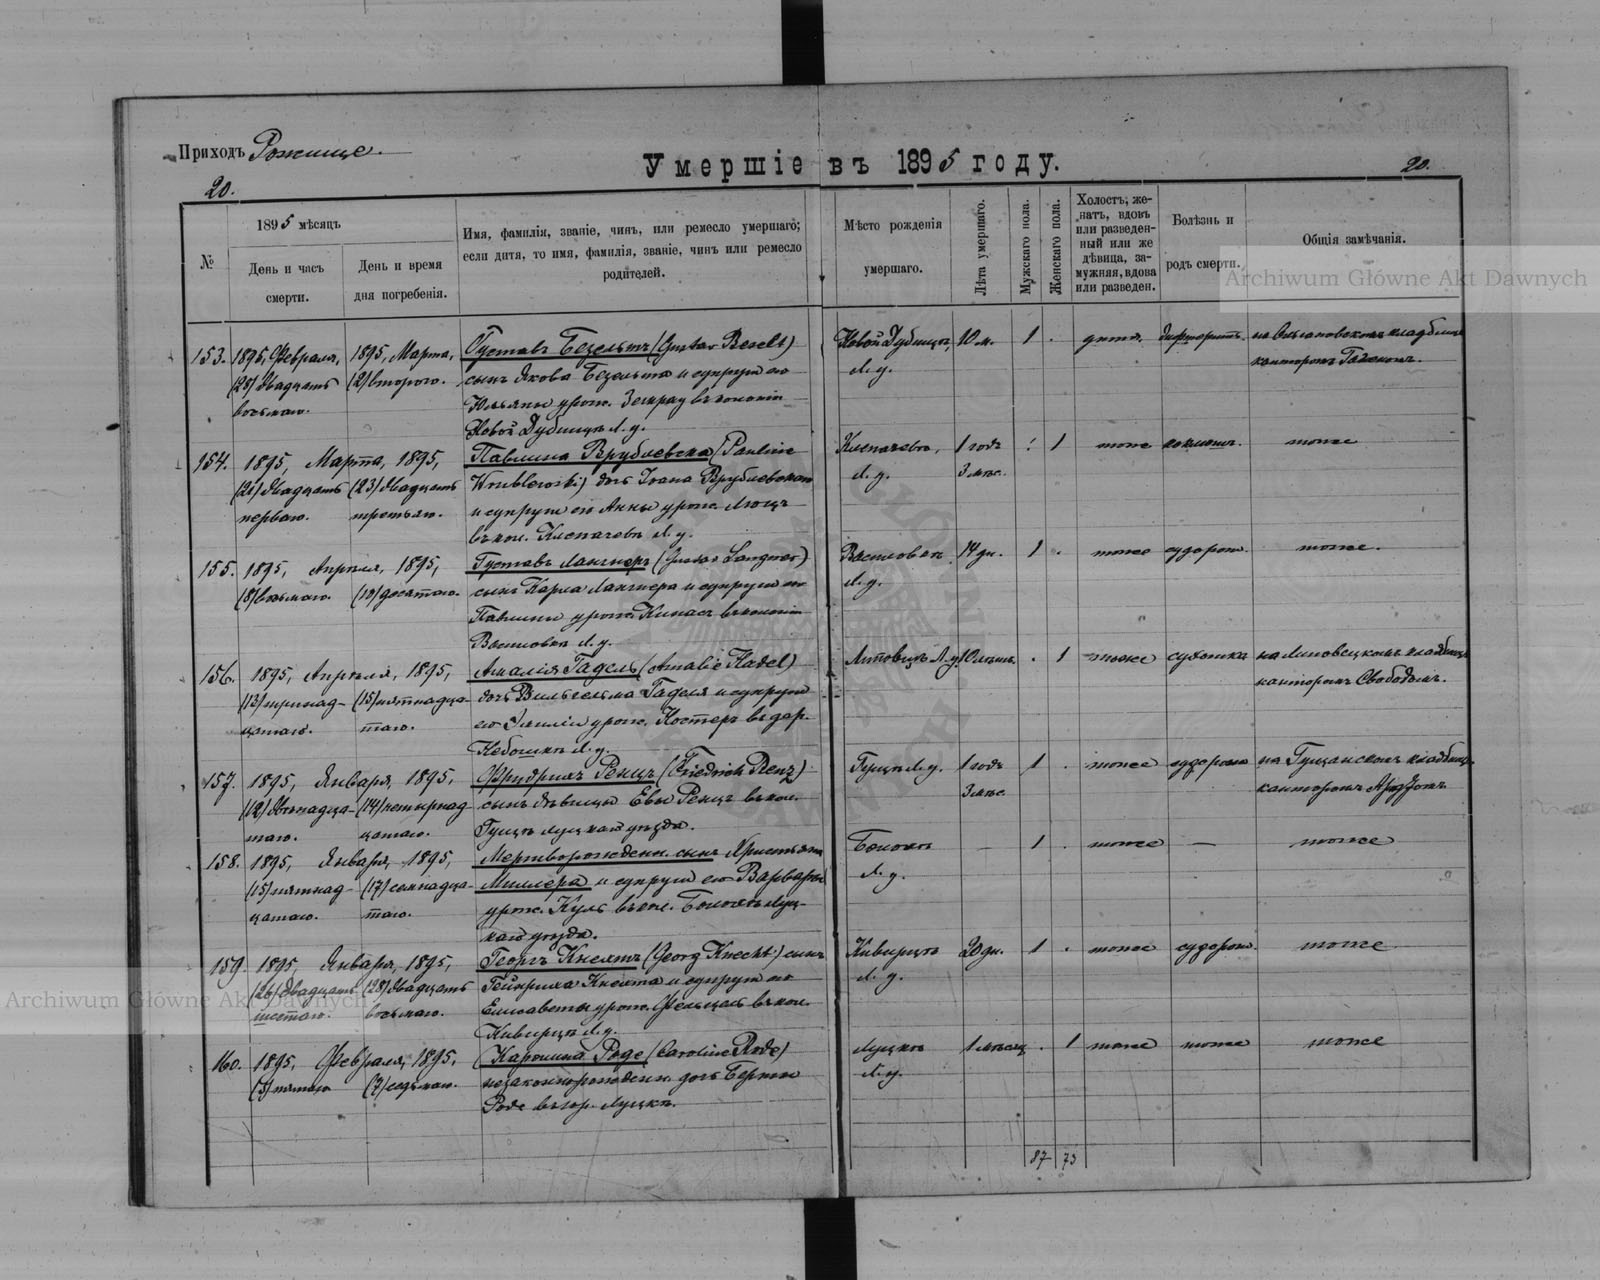 Приходъ Рожище.
Умершіе въ 1895 году.
20.
20.
№
1895 мѣсяцъ
День и часъ
смерти.
День и время
дня погребенія.
Имя, фамилія, званіе, чинъ, или ремесло умершаго;
если дитя, то имя, фамилія, званіе, чинъ или ремесло
родителей.
Мѣсто рожденія
умершаго.
Лѣта умершаго.
Мужскаго пола.
Женскаго пола.
Холостъ, же-
натъ, вдовъ
или разведен-
ный или же
дѣвица, за-
мужняя, вдова
или разведен.
Болѣзнь и
родъ смерти.
Общія замѣчанія.
Archiwum Główne Akt Dawnych
153. 1895, Февраля, 1895, Марта, Густавъ Безельтъ (Gustav Beselt) Новой Дубищѣ, 10 м. 1 . дитя. дифтеритъ. на кладбищѣ
(28) двадцать (2) второго. сынъ Якова Безельта и супруги его Л. у. канторомъ
восьмаго. Юльяны урож. въ колоніи
Новой Дубищѣ Л. у.
154. 1895, Марта, 1895, Павлина Врублевска (Pauline 1 годъ 1 тоже тоже
(21) двадцать (23) двадцать Wrublewski) дочь Ивана Врублевскаго Л. у. 3 мѣс.
перваго. третьяго. и супруги его Анны урож.
въ кол. Л. у.
155. 1895, Апрѣля, 1895, Густавъ Лангнеръ (Gustav Langner) 14 дн. 1 . тоже судорож. тоже.
(8) восьмаго. (10) десятаго. сынъ Карла Лангнера и супруги его Л. у.
Павлины урож. въ колоніи
Л. у.
156. 1895, Апрѣля, 1895, Амалія Гадель (Amalie Hadel) Л. у. . 1 тоже сухотка на кладбищѣ
(13) тринад- (15) пятнадца- дочь Вильгельма Гаделя и супруги канторомъ Свободомъ.
цатаго. таго. его Эмиліи урож. Костеръ въ дер.
Л. у.
157. 1895, Января, 1895, Фридрихъ Ренцъ (Friedrich Renz) Гущѣ Л. у. 1 годъ 1 . тоже судорож. на Гущанскомъ кладбищѣ
(12) двѣнадца- (14) четырнад- сынъ дѣвицы Евы Ренцъ въ кол. 3 мѣс. канторомъ
таго. цатаго. Гущѣ луцкаго уѣзда.
158. 1895, Января, 1895, Мертворожденн. сынъ Христьяна — 1 . тоже — тоже
(15) пятнад- (17) семнадца- Миллера и супруги его Варвары Л. у.
цатаго. таго. урож. Куль въ кол. Луц-
каго уѣзда.
159. 1895, Января, 1895, Георгъ Кнехтъ (Georg Knecht) сынъ Киверцѣ 20 дн. 1 . тоже судорож. тоже
(26) двадцать (28) двадцать Гейнриха Кнехта и супруги его Л. у.
шестаго. восьмаго. Елисаветы урож. въ кол.
Киверцѣ Л. у.
160. 1895, Февраля, 1895, Каролина Роде (Caroline Rode) Луцкъ 1 мѣсяц. . 1 тоже тоже тоже
(5) пятаго (7) седьмаго. незаконнорожденн. дочь Берты Л. у.
Роде въ гор. Луцкѣ.
87 73
Archiwum Główne Akt Dawnych